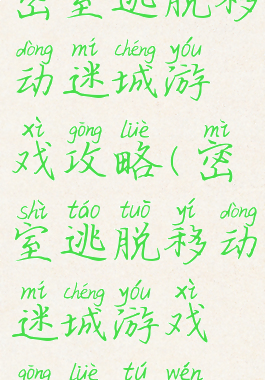 密室逃脱移
dòng mí chéng yóu
动迷城游
xì gōng lüè mì
戏攻略(密
shì táo tuō yí dòng
室逃脱移动
mí chéng yóu xì
迷城游戏
gōng lüè tú wén